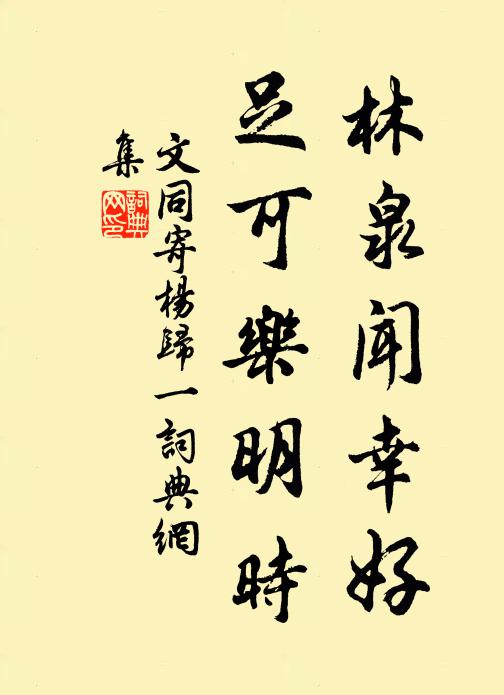 林泉闻幸好
足可樂明時
文同寄楊歸一詞典網
集
詞典
网印